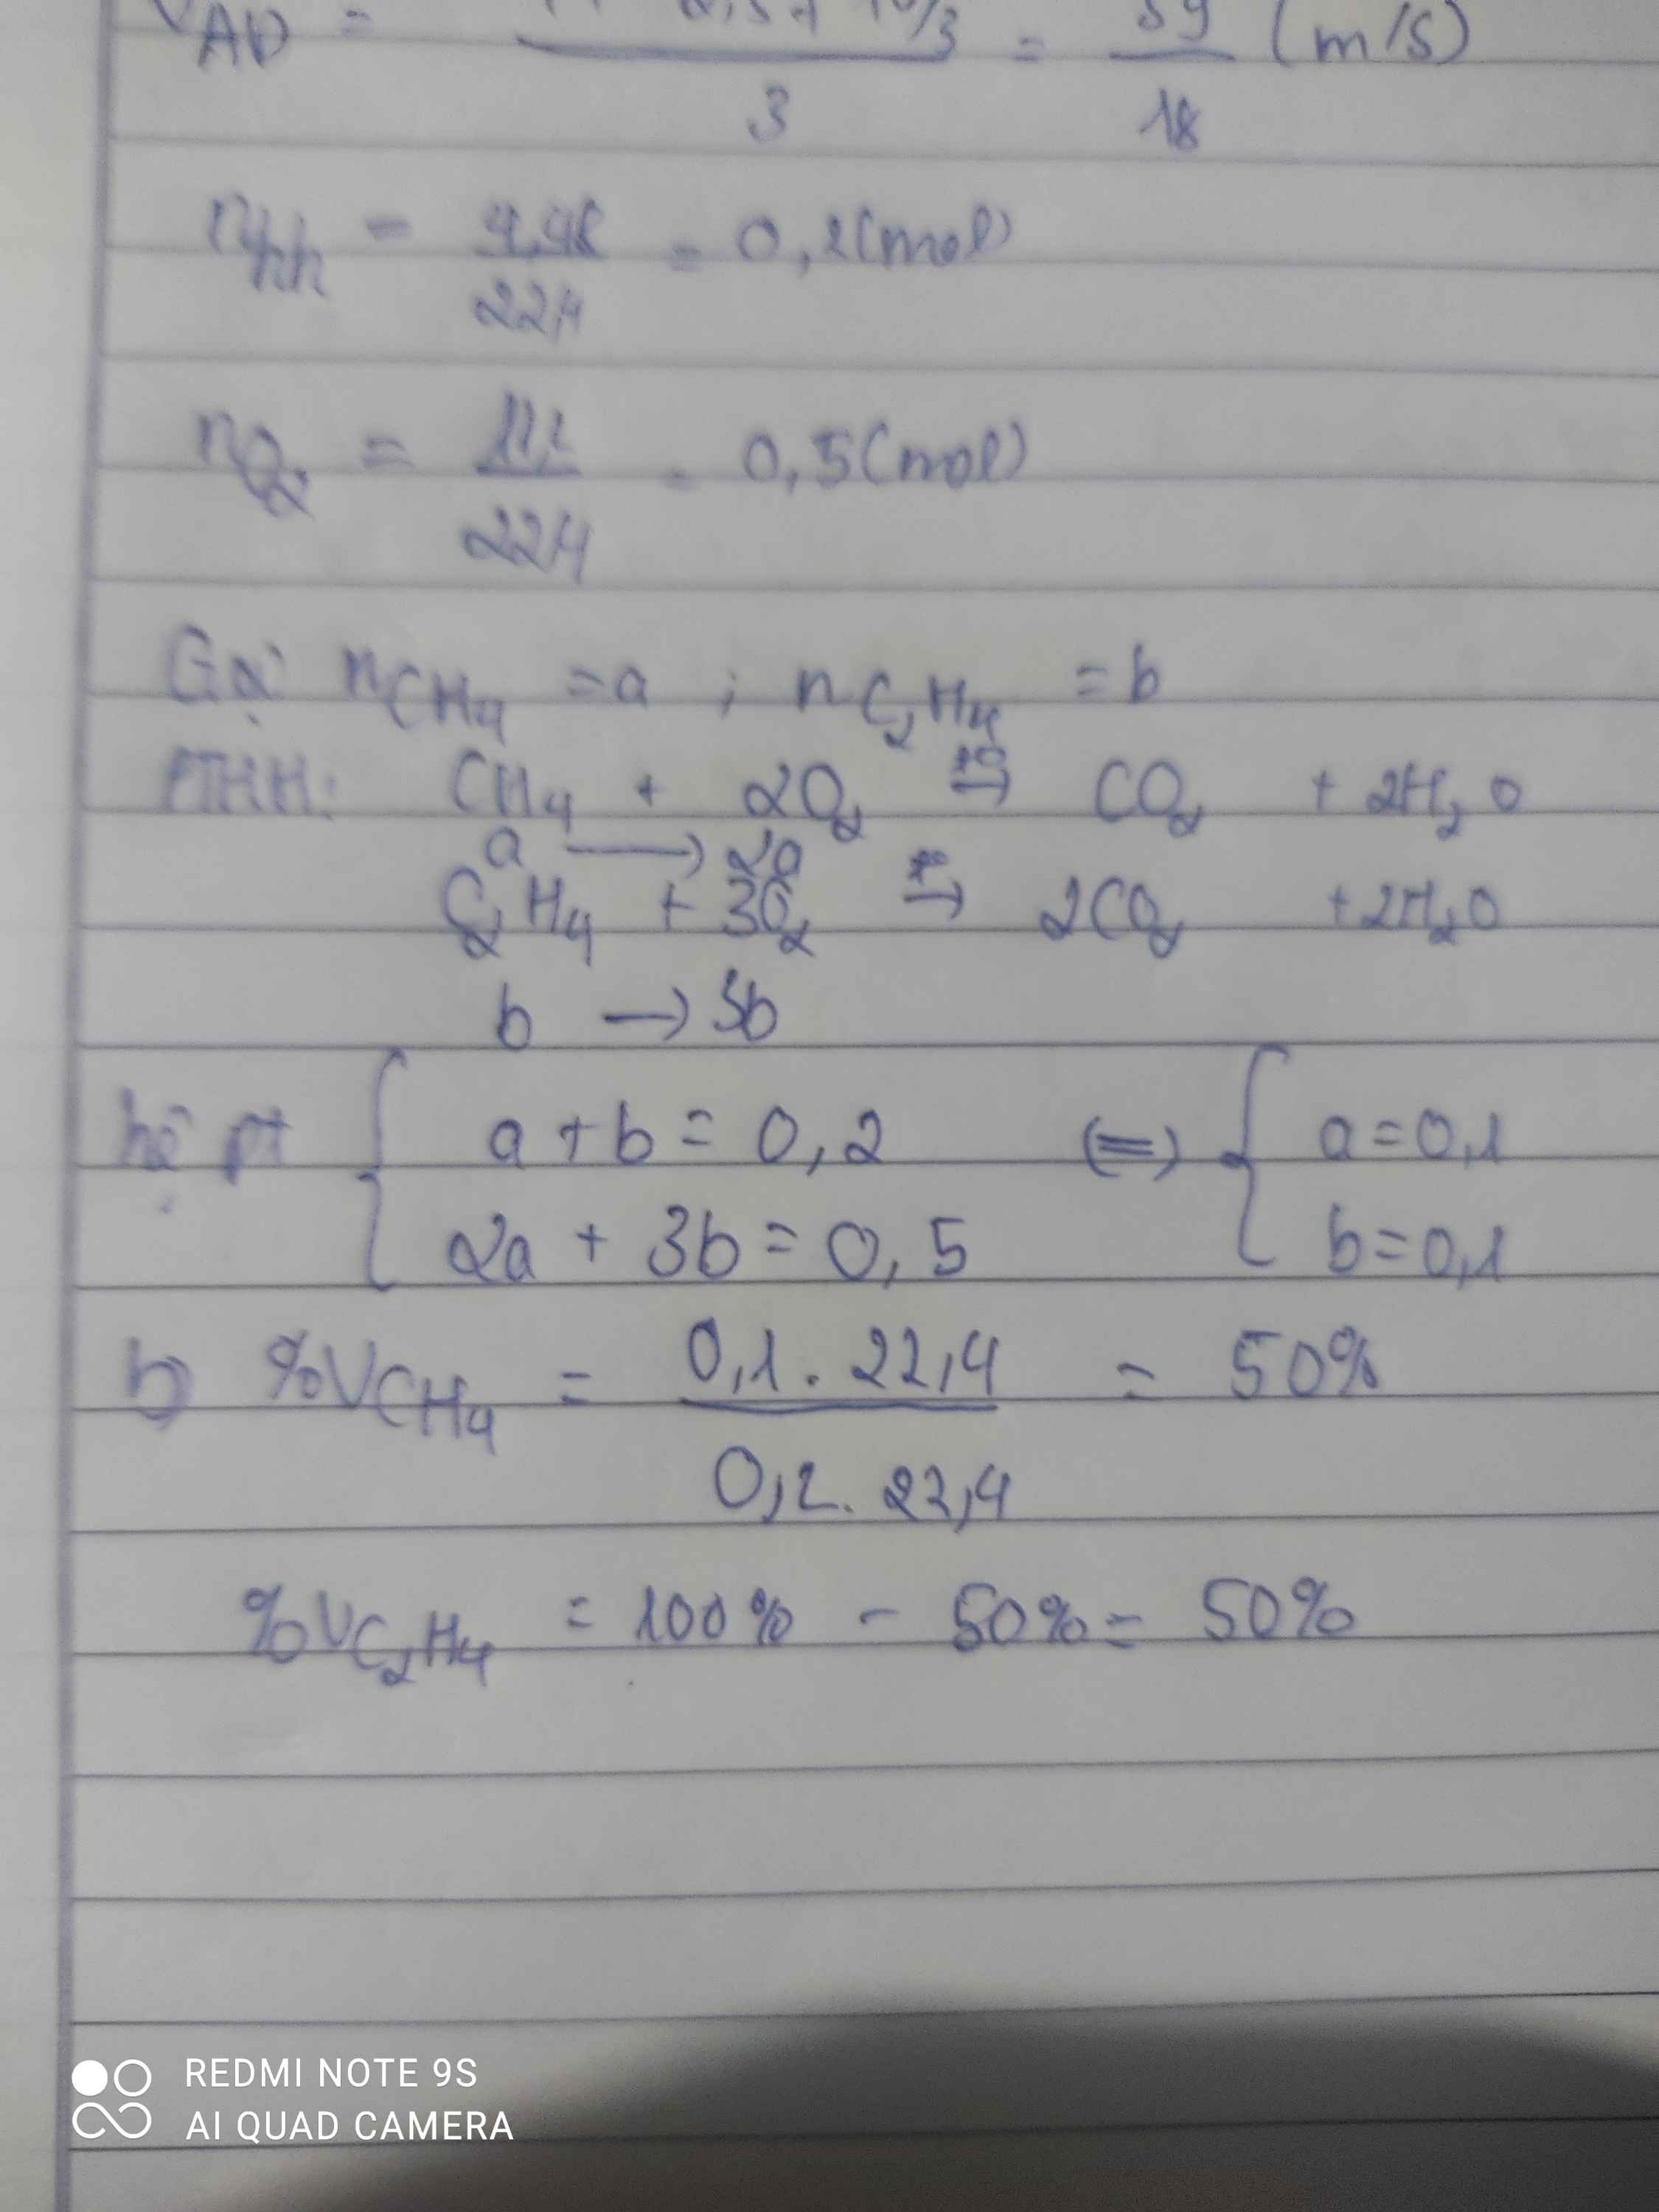 AD = 3 = 18 (m/s)
nhh = 4,48/22,4 = 0,2 (mol)
nO2 = 11,2/22,4 = 0,5 (mol)
Gọi nCH4 = a ; nC2H4 = b
PTHH: CH4 + 2O2 t°→ CO2 + 2H2O
a → 2a
C2H4 + 3O2 t°→ 2CO2 + 2H2O
b → 3b
hệ pt { a + b = 0,2 (=) { a = 0,1
2a + 3b = 0,5 b = 0,1
b) %VCH4 = 0,1 . 22,4 / 0,2 . 22,4 = 50%
%VC2H4 = 100% - 50% = 50%
REDMI NOTE 9S
AI QUAD CAMERA